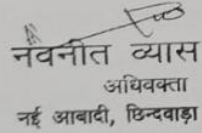 नवनीत व्यास
अधिवक्ता
नई आबादी, छिन्दवाड़ा